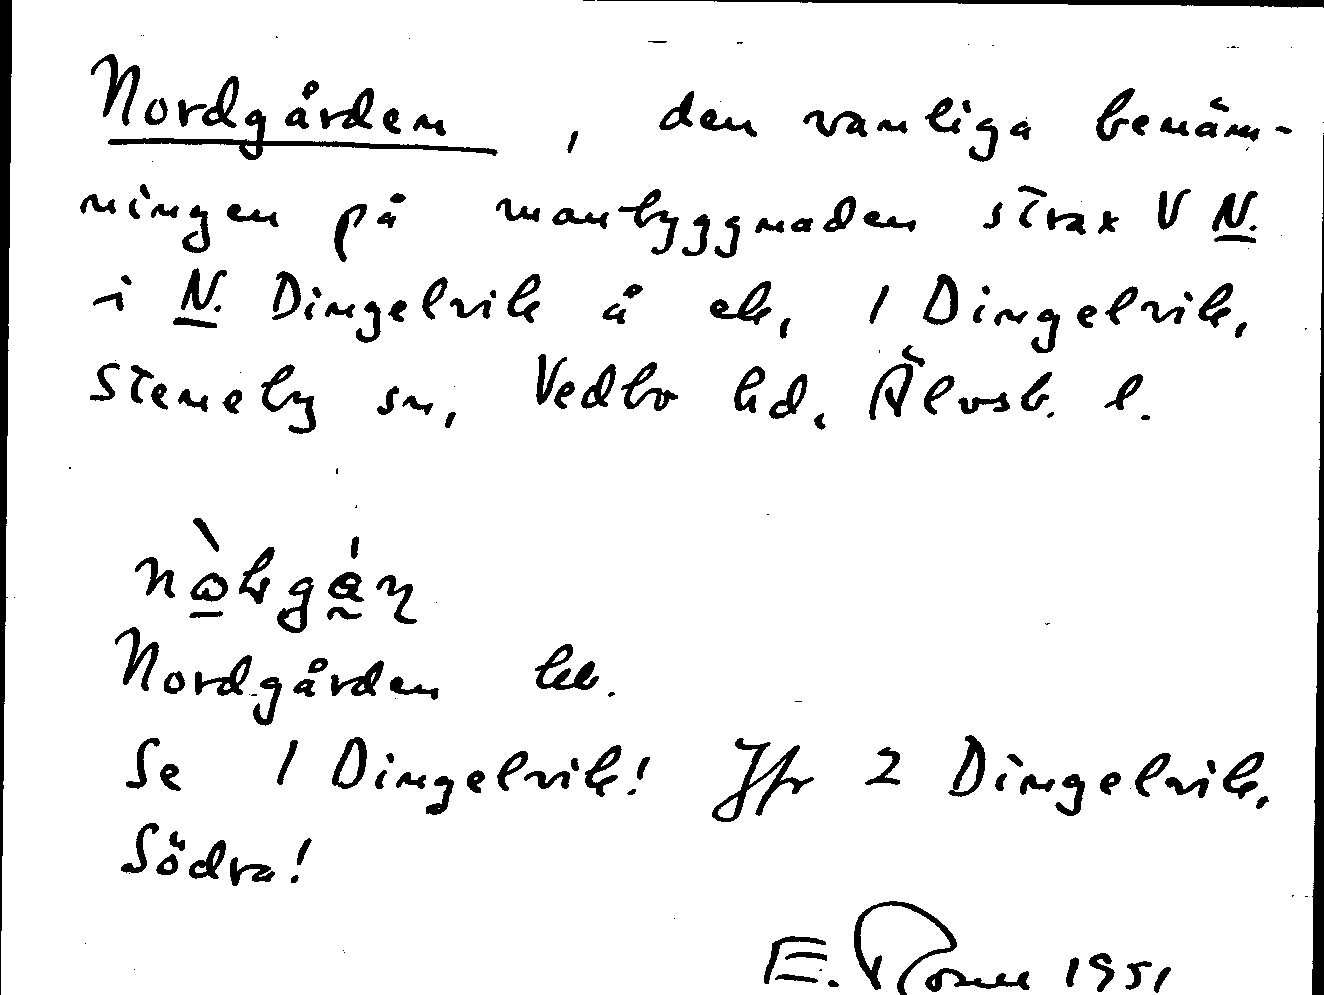 Nordgården, den vanliga benäm-
ningen på manbyggnaden strax V N.
i N. Dingelvik å ek, 1 Dingelvik,
Steneby sn, Vedbo hd, Älvsb. l.
Nordgården
Se 1 Dingelvik! Jfr 2 Dingelvik,
Södra!
E. 1951